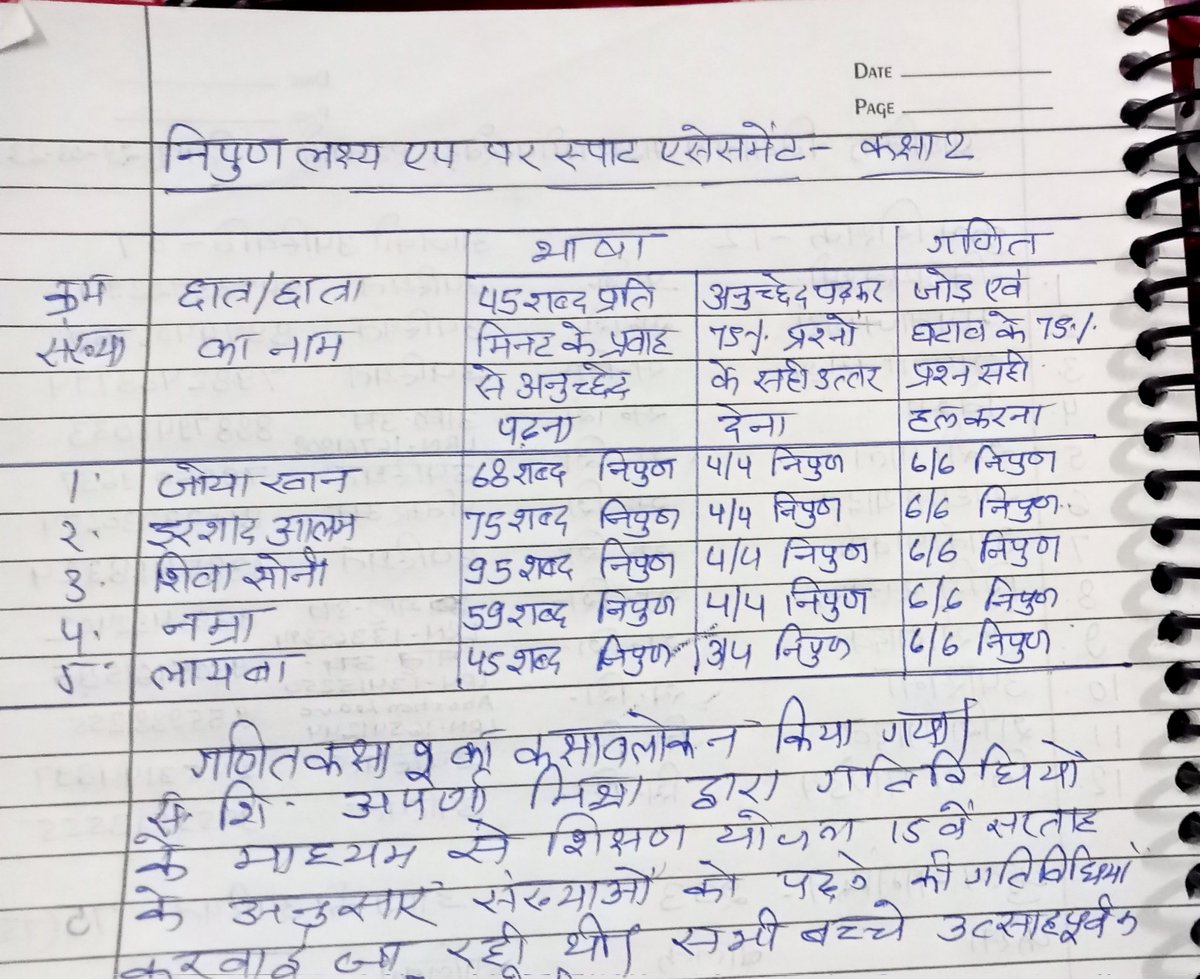 DATE
PAGE
निपुण लक्ष्य एप पर स्पाट एसेसमेंट- कक्षा 2
भाषा गणित
क्रम छात्र/छात्रा 45 शब्द प्रति अनुच्छेद पढ़कर जोड़ एवं
संख्या का नाम मिनट के प्रवाह 75% प्रश्नों घटाव के 75%
से अनुच्छेद के सही उत्तर प्रश्न सही
पढ़ना देना हल करना
1. जोया खान 68 शब्द निपुण 4/4 निपुण 6/6 निपुण
2. इरशाद आलम 75 शब्द निपुण 4/4 निपुण 6/6 निपुण
3. शिवा सोनी 95 शब्द निपुण 4/4 निपुण 6/6 निपुण
4. नम्रा 59 शब्द निपुण 4/4 निपुण 6/6 निपुण
5. लायबा 45 शब्द निपुण 3/4 निपुण 6/6 निपुण
गणित कक्षा का कक्षावलोकन किया गया।
स. शि. अपर्णा मिश्रा द्वारा गतिविधियों
के माध्यम से शिक्षण योजना 15वें सप्ताह
के अनुसार संख्याओं को पढ़ने की गतिविधियां
करवाई जा रही थी। सभी बच्चे उत्साहपूर्वक